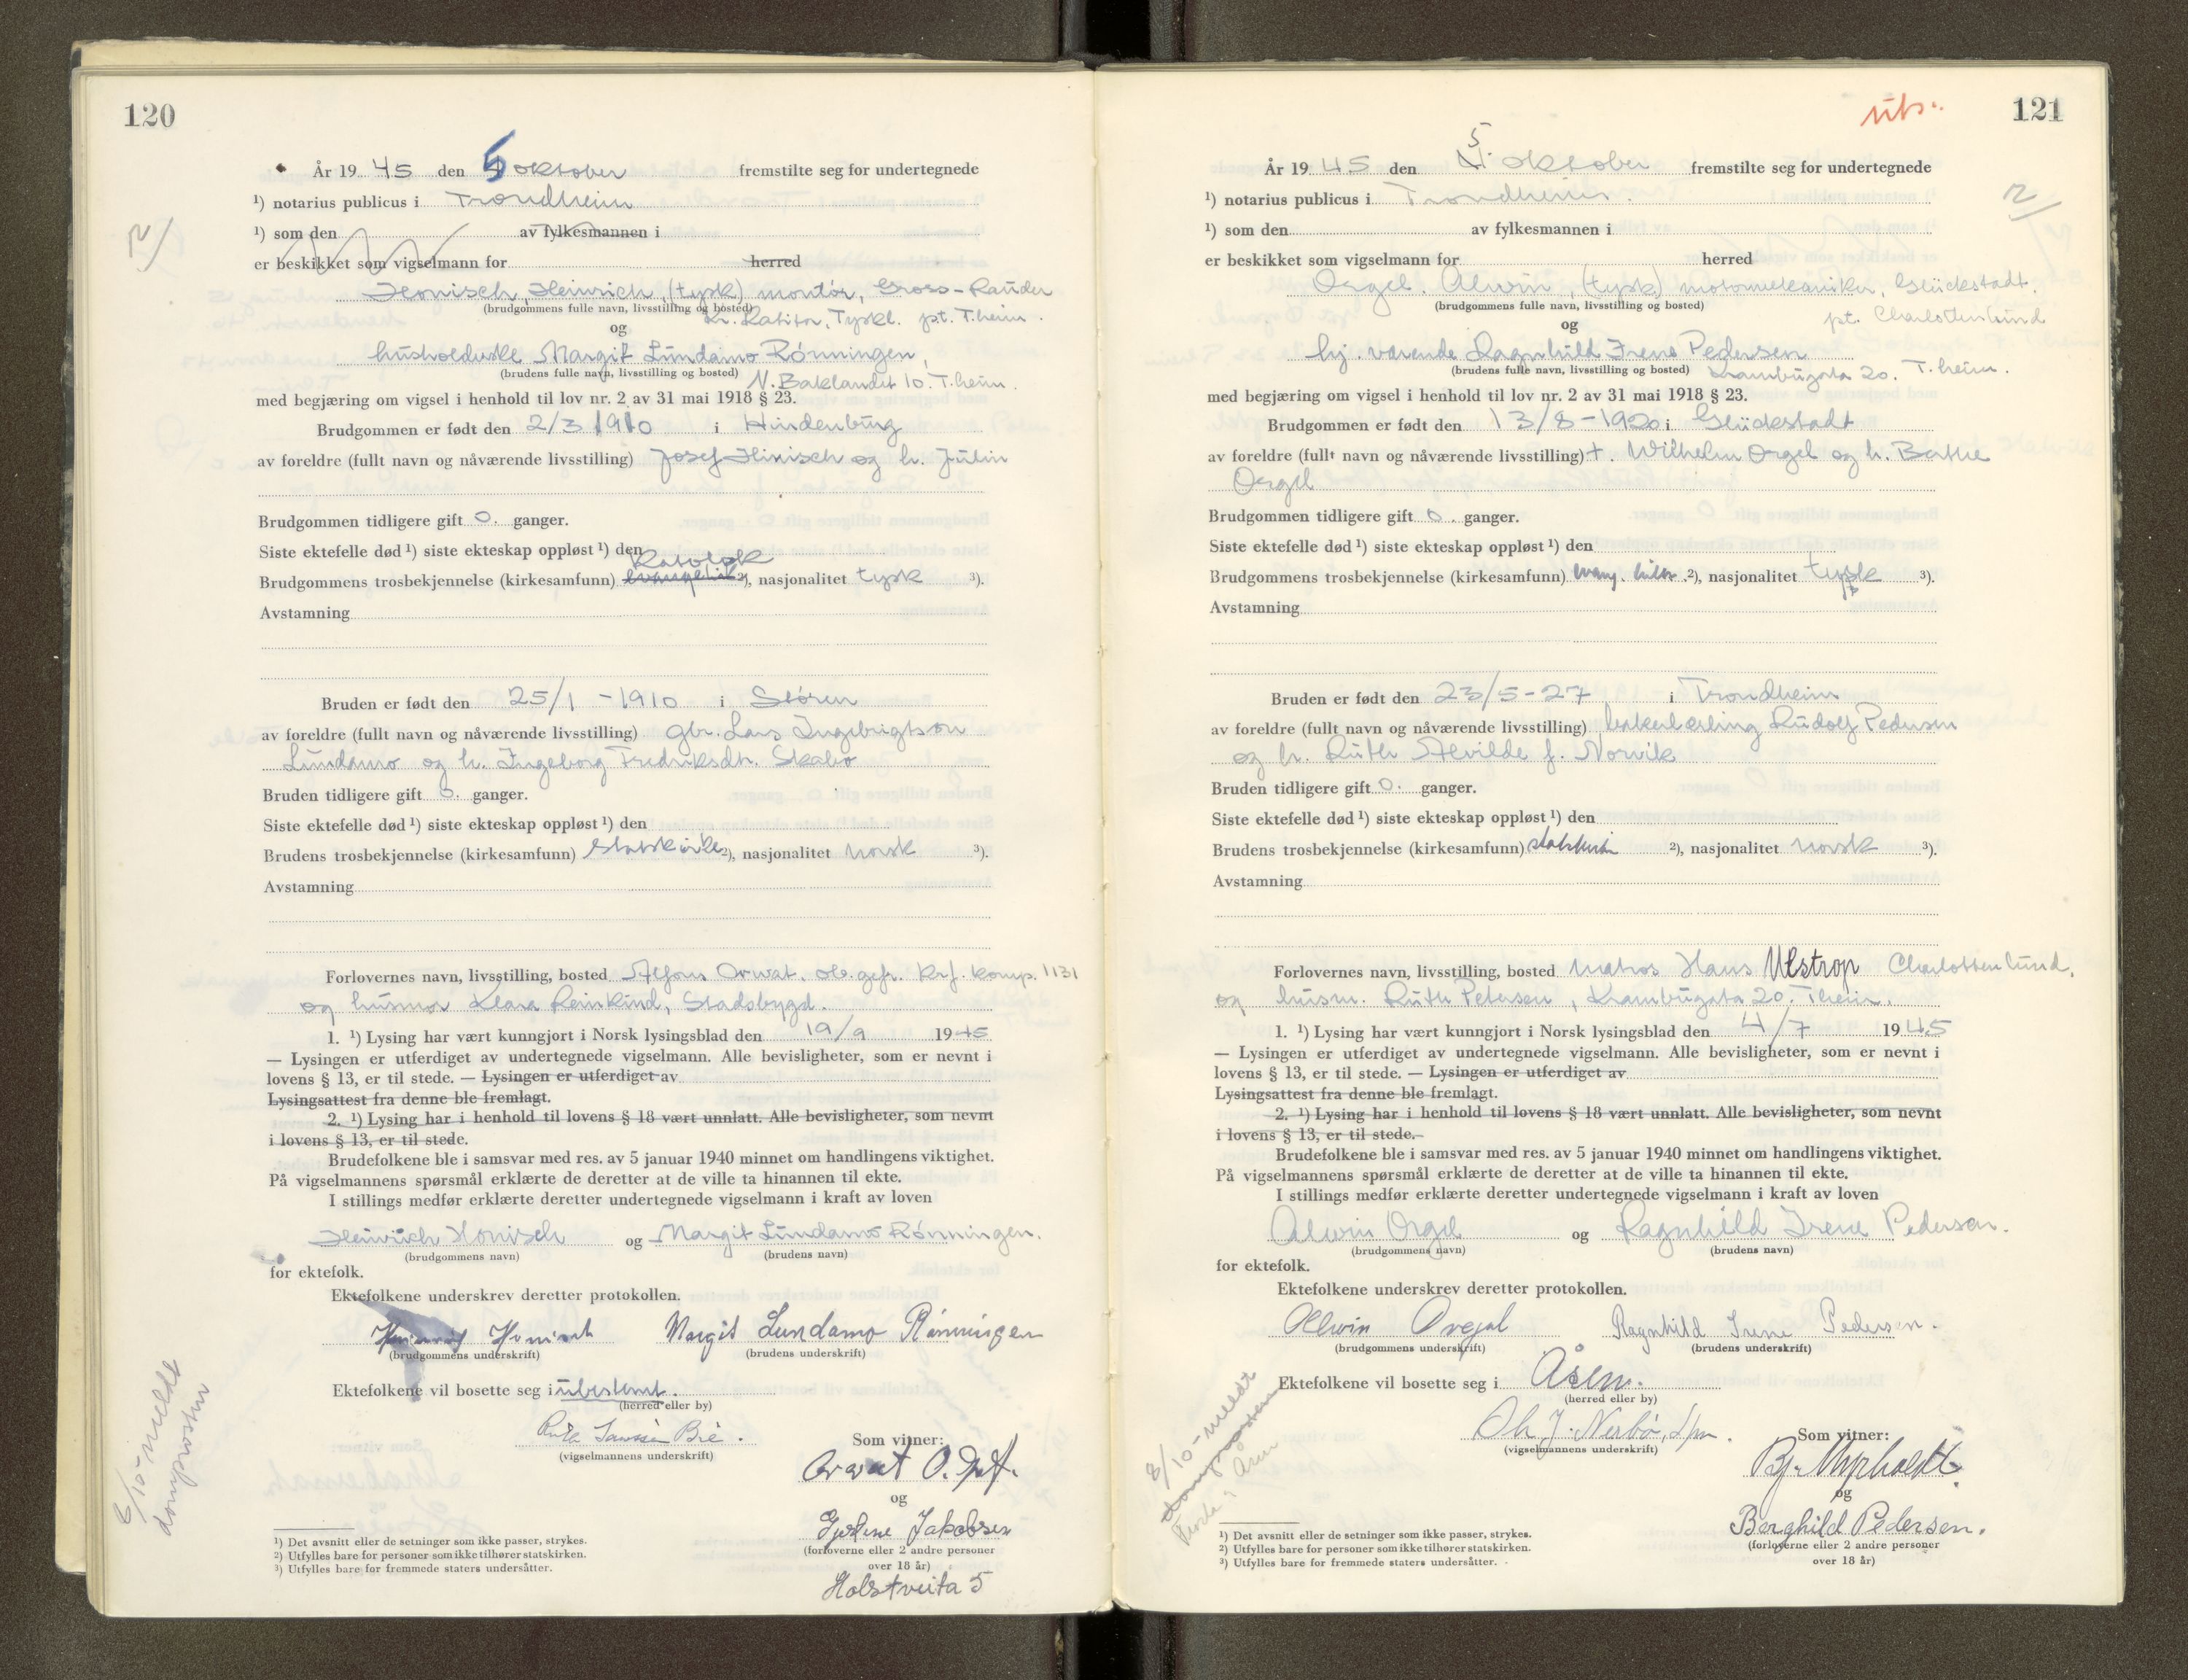 120
År 1945 den 5 oktober fremstilte seg for undertegnede
¹) notarius publicus i Trondheim
¹) som den av fylkesmannen i
er beskikket som vigselmann for herred
Honisch, Heinrich, (tysk) montør, Gross-Rauden
(brudgommens fulle navn, livsstilling og bosted)
Kr. Ratibor, Tyskl. pt. T.heim.
og
husholderske Margit Lundamo Rønningen,
(brudens fulle navn, livsstilling og bosted) N. Baklandet 10. T.heim.
med begjæring om vigsel i henhold til lov nr. 2 av 31 mai 1918 § 23.
Brudgommen er født den 2/3 1910 i Hindenburg
av foreldre (fullt navn og nåværende livsstilling) Josef Honisch og h. Julin
Brudgommen tidligere gift 0. ganger.
Siste ektefelle død¹) siste ekteskap oppløst¹) den
Katolsk
Brudgommens trosbekjennelse (kirkesamfunn) evangelisk ²), nasjonalitet tysk ³).
Avstamning
Bruden er født den 25/1 - 1910 i Støren
av foreldre (fullt navn og nåværende livsstilling) gbr. Lars Ingebrigtson
Lundamo og h. Ingeborg Fredriksdtr. Skabo
Bruden tidligere gift 0. ganger.
Siste ektefelle død¹) siste ekteskap oppløst¹) den
Brudens trosbekjennelse (kirkesamfunn) Statskirke ²), nasjonalitet norsk ³).
Avstamning
Forlovernes navn, livsstilling, bosted Alfons Orwat. ob.gefr. Krf. komp. 1131
og husmor Klara Reinkind, Stadsbygd.
1. ¹) Lysing har vært kunngjort i Norsk lysingsblad den 19/9 1945
— Lysingen er utferdiget av undertegnede vigselmann. Alle bevisligheter, som er nevnt i
lovens § 13, er til stede. — Lysingen er utferdiget av
Lysingsattest fra denne ble fremlagt.
2. ¹) Lysing har i henhold til lovens § 18 vært unnlatt. Alle bevisligheter, som nevnt
i lovens § 13, er til stede.
Brudefolkene ble i samsvar med res. av 5 januar 1940 minnet om handlingens viktighet.
På vigselmannens spørsmål erklærte de deretter at de ville ta hinannen til ekte.
I stillings medfør erklærte deretter undertegnede vigselmann i kraft av loven
Heinrich Honisch og Margit Lundamo Rønningen.
(brudgommens navn) (brudens navn)
for ektefolk.
Ektefolkene underskrev deretter protokollen.
Heinrich Honisch Margit Lundamo Rønningen
(brudgommens underskrift) (brudens underskrift)
Ektefolkene vil bosette seg i ubestemt.
(herred eller by)
(vigselmannens underskrift)
Som vitner:
Orwat
og
Jakobsen
(forloverne eller 2 andre personer
over 18 år)
Holstveita 5
6/10-meldt
domprosten
¹) Det avsnitt eller de setninger som ikke passer, strykes.
²) Utfylles bare for personer som ikke tilhører statskirken.
³) Utfylles bare for fremmede staters undersåtter.
121
År 1945 den 5. oktober fremstilte seg for undertegnede
¹) notarius publicus i Trondheim.
¹) som den av fylkesmannen i
er beskikket som vigselmann for herred
Orgel. Alwin, (tysk) motormekaniker, Glückstadt.
(brudgommens fulle navn, livsstilling og bosted)
pt. Charlottenlund
og
hj. værende Ragnhild Irene Pedersen
(brudens fulle navn, livsstilling og bosted) Krambugata 20. T.heim.
med begjæring om vigsel i henhold til lov nr. 2 av 31 mai 1918 § 23.
Brudgommen er født den 13/8-1920 i Glückstadt
av foreldre (fullt navn og nåværende livsstilling) +. Wilhelm Orgel og h. Bertha
Orgel
Brudgommen tidligere gift 0. ganger.
Siste ektefelle død¹) siste ekteskap oppløst¹) den
Brudgommens trosbekjennelse (kirkesamfunn) evang. luter. ²), nasjonalitet tysk ³).
Avstamning
Bruden er født den 23/5-27 i Trondheim
av foreldre (fullt navn og nåværende livsstilling) bakerlærling Rudolf Pedersen
og h. Ruth Alvilde f. Norvik
Bruden tidligere gift 0. ganger.
Siste ektefelle død¹) siste ekteskap oppløst¹) den
Brudens trosbekjennelse (kirkesamfunn) statskirk ²), nasjonalitet norsk ³).
Avstamning
Forlovernes navn, livsstilling, bosted matros Hans Ulstrop Charlottenlund,
og husm. Ruth Petersen, Krambugata 20. T.heim.
1. ¹) Lysing har vært kunngjort i Norsk lysingsblad den 4/7 1945
— Lysingen er utferdiget av undertegnede vigselmann. Alle bevisligheter, som er nevnt i
lovens § 13, er til stede. — Lysingen er utferdiget av
Lysingsattest fra denne ble fremlagt.
2. ¹) Lysing har i henhold til lovens § 18 vært unnlatt. Alle bevisligheter, som nevnt
i lovens § 13, er til stede.
Brudefolkene ble i samsvar med res. av 5 januar 1940 minnet om handlingens viktighet.
På vigselmannens spørsmål erklærte de deretter at de ville ta hinannen til ekte.
I stillings medfør erklærte deretter undertegnede vigselmann i kraft av loven
Alwin Orgel og Ragnhild Irene Pedersen.
(brudgommens navn) (brudens navn)
for ektefolk.
Ektefolkene underskrev deretter protokollen.
Alwin Orgel Ragnhild Irene Pedersen.
(brudgommens underskrift) (brudens underskrift)
Ektefolkene vil bosette seg i Åsen.
(herred eller by)
(vigselmannens underskrift)
Som vitner:
og
Borghild Pedersen.
(forloverne eller 2 andre personer
over 18 år)
8/10-meldt
domprosten
Åsen
¹) Det avsnitt eller de setninger som ikke passer, strykes.
²) Utfylles bare for personer som ikke tilhører statskirken.
³) Utfylles bare for fremmede staters undersåtter.